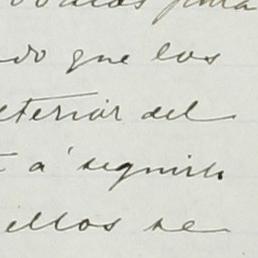 para
do que los
eterior del
á seguirlo
ellos se